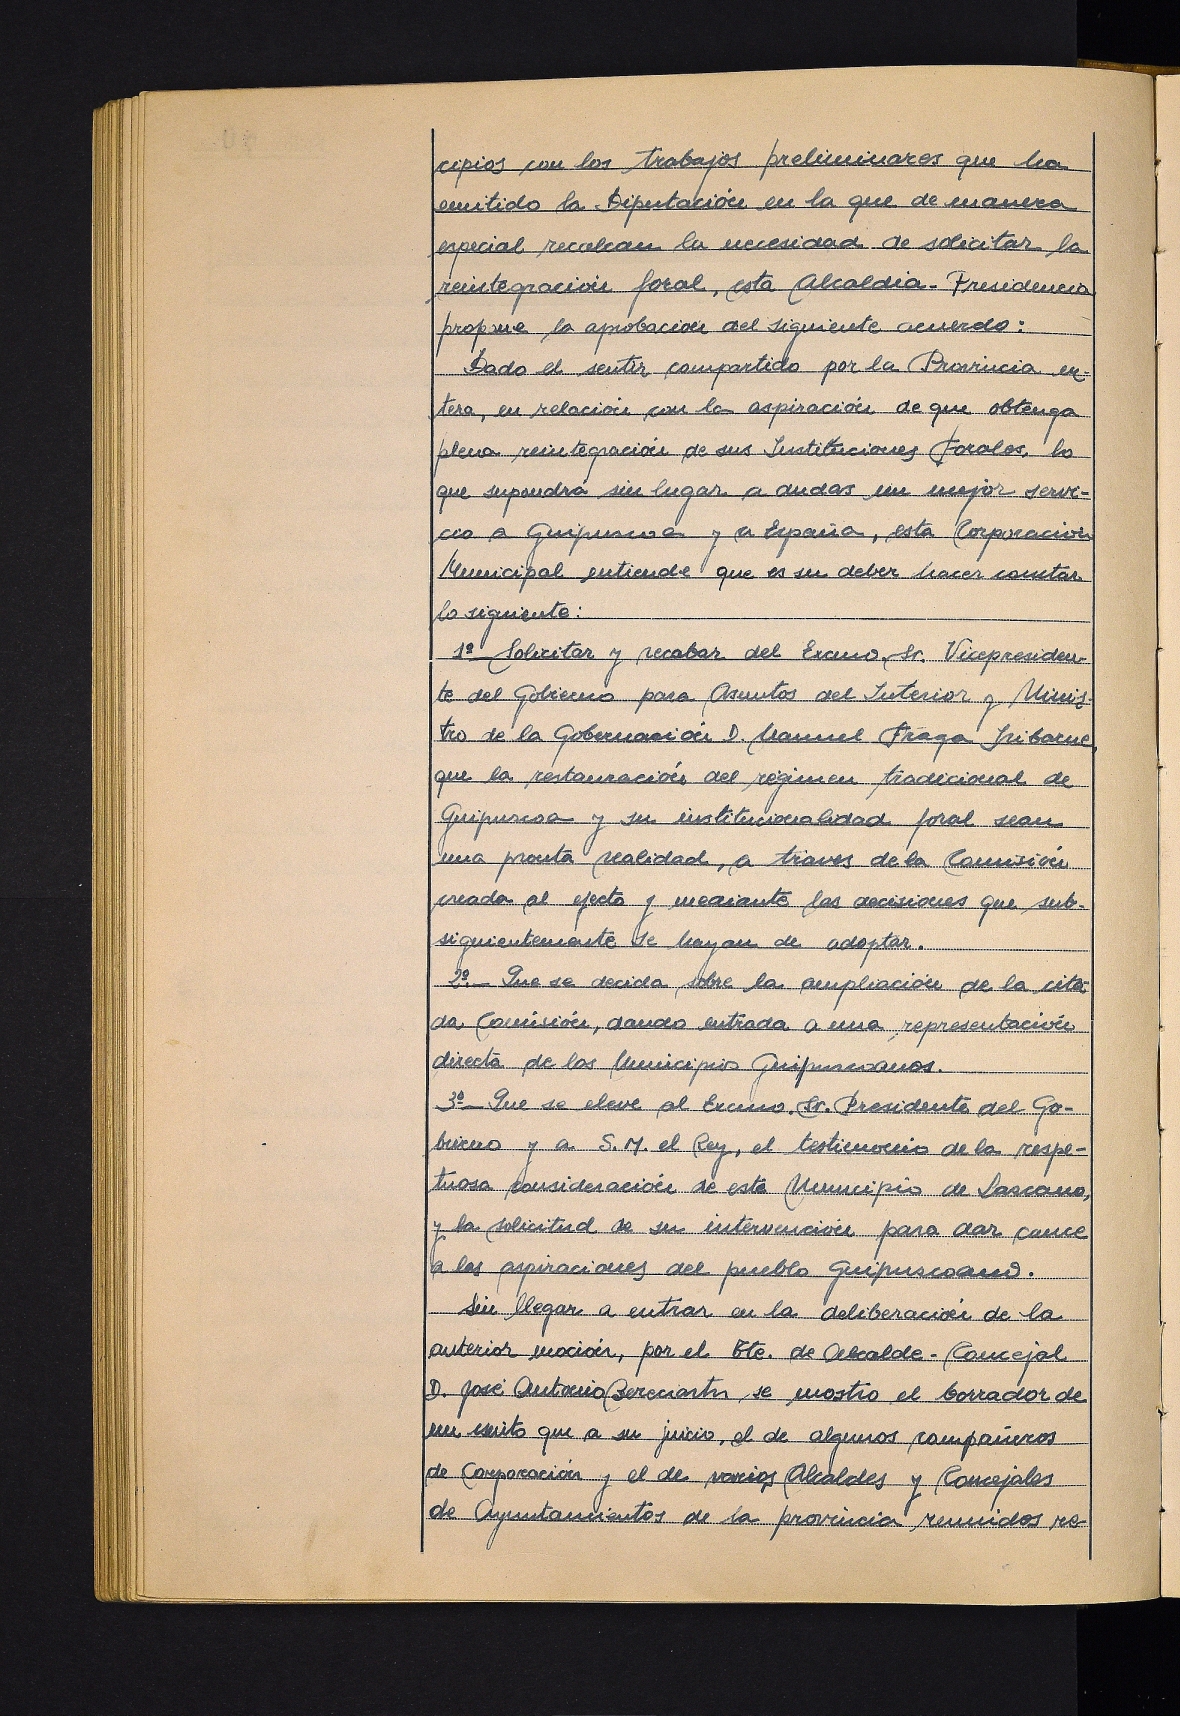 cipios con los trabajos preliminares que ha
emitido la Diputación en la que de manera
especial recalcan la necesidad de solicitar la
reintegración foral, esta Alcaldía-Presidencia
propone la aprobación del siguiente acuerdo:
Dado el sentir compartido por la Provincia en-
tera, en relación con la aspiración de que obtenga
plena reintegración de sus Instituciones Forales, lo
que supondrá sin lugar a dudas un mejor servi-
cio a Guipuscoa y a España, esta Corporación
Municipal entiende que es su deber hacer constar
lo siguiente:
1º_ Solicitar y recabar del Excmo. Sr. Vicepresiden-
te del Gobierno para Asuntos del Interior y Minis-
tro de la Gobernación D. Manuel Fraga Iribarne,
que la restauración del régimen tradicional de
Guipuscoa y su institucionalidad foral sean
una pronta realidad, a traves de la Comisión
creada al efecto y mediante las decisiones que sub-
siguientemente se hayan de adoptar.
2º._ Que se decida sobre la ampliación de la cita-
da Comisión, dando entrada a una representación
directa de los Municipios Guipuscoanos.
3º_ Que se eleve al Excmo. Sr. Presidente del Go-
bierno y a S.M. el Rey, el testimonio de la respe-
tuosa consideración de este Municipio de Lascano,
y la solicitud de su intervención para dar cauce
a las aspiraciones del pueblo Guipuscoano.
Sin llegar a entrar en la deliberación de la
anterior moción, por el Tte. de Alcalde-Concejal
D. José Antonio Bereciartu se mostro el borrador de
un escrito que a su juicio, el de algunos compañeros
de Corporación y el de varios Alcaldes y Concejales
de Ayuntamientos de la provincia reunidos re-